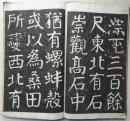 淙下三百餘
尺東北有石
崇觀高石中
猶有螺蚌殼
或以為桑田
所變西北有